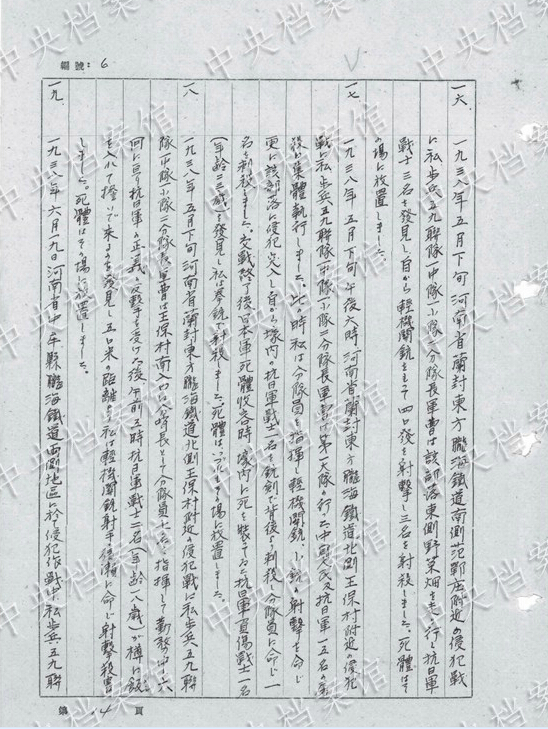 中央档案馆
編號：6
一六 一九三八年五月下旬河南省蘭封東方隴海鐵道南側范鄲庄附近の侵犯戰
に私步兵五九聯隊一中隊一小隊二分隊長軍曹は該部落東側野菜畑を走り行く抗日軍
戰士三名を發見し自から輕機関銃をもて四〇發を射撃し三名を射殺しました。死體はそ
の場に放置しました。
一七 一九三八年五月下旬午後六時、河南省蘭封東方隴海鐵道北側王保村附近の侵犯
戰に私步兵五九聯隊一中隊一小隊二分隊長軍曹は第一大隊の行
抗日軍一五名の
後に集體執行しました。此の時私は分隊員を指揮し輕機関銃、小銃の射撃を命じ
更に該部落に侵犯突入し自から壕内の抗日軍戰士一名を銃劍で背後より刺殺、分隊員に命じ一
名を刺殺しました。交戰終了後日本軍死體收容時、壕内に死を裝てゐた抗日軍負傷戰士一名
（年齡二三歲）を發見し私は拳銃で射殺しました。死體は の場に放置しました。
一八 一九三八年五月下旬河南省蘭封東方隴海鐵道北側王保村附近の侵犯戰に私步兵五九聯
隊一中隊一小隊二分隊長軍曹は王保村南入口 長として分隊員十名を指揮して勤務中、六
回に亘り抗日軍の正義の反撃を受けた後午前三時抗日軍戰士二名（年齡一八歲）が樽に飯
を入れて擔いで来るのを發見し五〇米の距離で私は輕機関銃射手 に命じ射撃殺害
しました。死體はその場に放置しました。
一九 一九三八年六月九日河南省中牟縣隴海鐵道両側地區に於る侵犯作戰中に私步兵五九聯
第 4 頁